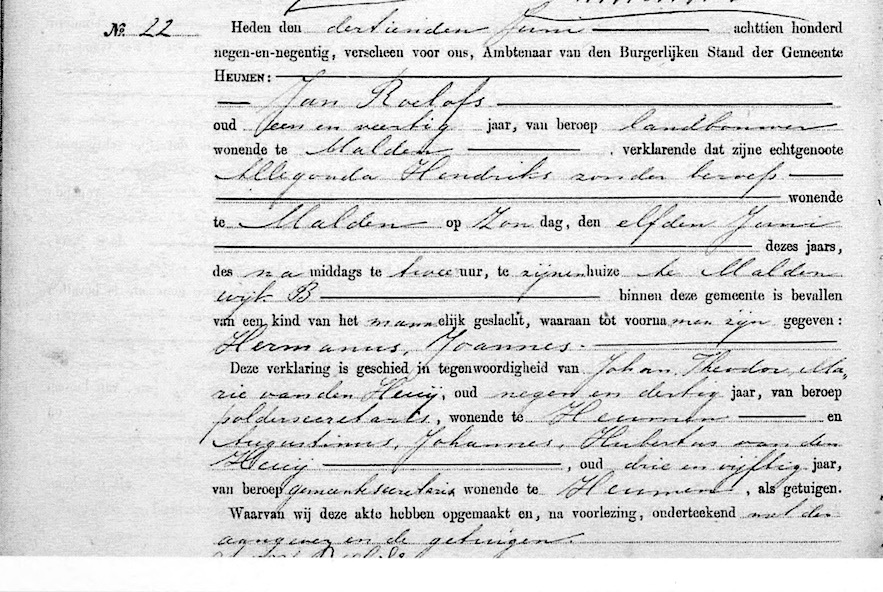 No. 22 Heden den dertienden Juni achttien honderd
negen-en-negentig, verscheen voor ons, Ambtenaar van den Burgerlijken Stand der Gemeente
HEUMEN:
Jan Roelofs
oud een en veertig jaar, van beroep landbouwer
wonende te Malden , verklarende dat zijne echtgenoote
Allegonda Hendriks zonder beroep
wonende
te Malden op Zondag, den elfden Juni
dezes jaars,
des na middags te twee uur, te zijnen huize te Malden
wijk B binnen deze gemeente is bevallen
van een kind van het mannelijk geslacht, waaraan tot voornamen zijn gegeven:
Hermanus, Joannes.
Deze verklaring is geschied in tegenwoordigheid van Johan, Theodor, Ma-
rie van den , oud negen en dertig jaar, van beroep
poldersecretaris, wonende te Heumen en
Augustinus, Johannes, Hubertus van den
, oud drie en vijftig jaar,
van beroep gemeentesecretaris wonende te Heumen, als getuigen.
Waarvan wij deze akte hebben opgemaakt en, na voorlezing, onderteekend met den
aangever en de getuigen.